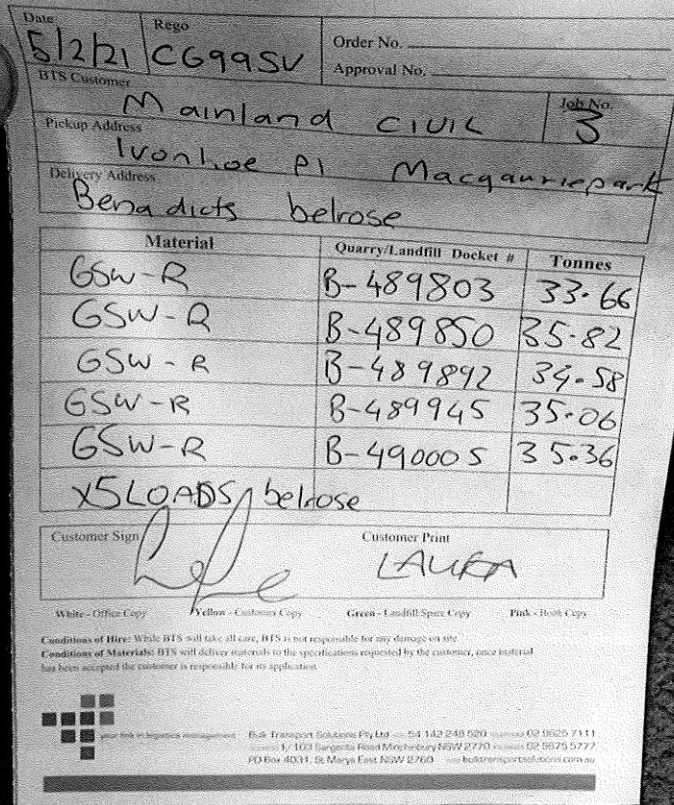 Date Rego Order No.
5/2/21 CG99SV Approval No.
BTS Customer Job No.
Mainland CIVIL 3
Pickup Address
Ivonhoe Pl Macqauriepark
Delivery Address
Benadicts belrose
Material Quarry/Landfill Docket # Tonnes
GSW-R B-489803 33.66
GSW-R B-489850 35.82
GSW-R B-489892 34.58
GSW-R B-489945 35.06
GSW-R B-490005 35.36
x5 LOADS belrose
Customer Sign Customer Print
LAURA
White - Office Copy Yellow - Customer Copy Green - Landfill Spare Copy Pink - Book Copy
Conditions of Hire: While BTS will take all care, BTS is not responsible for any damage on site
Conditions of Materials: BTS will deliver materials to the specifications requested by the customer, once material
has been accepted the customer is responsible for its application.
your link in logistics management Bulk Transport Solutions Pty Ltd 54 142 248 520 02 9625 7111
1/ 103 Sargents Road Minchinbury NSW 2770 02 9675 5777
PO Box 4031, St Marys East NSW 2760 bulktransportsolutions.com.au